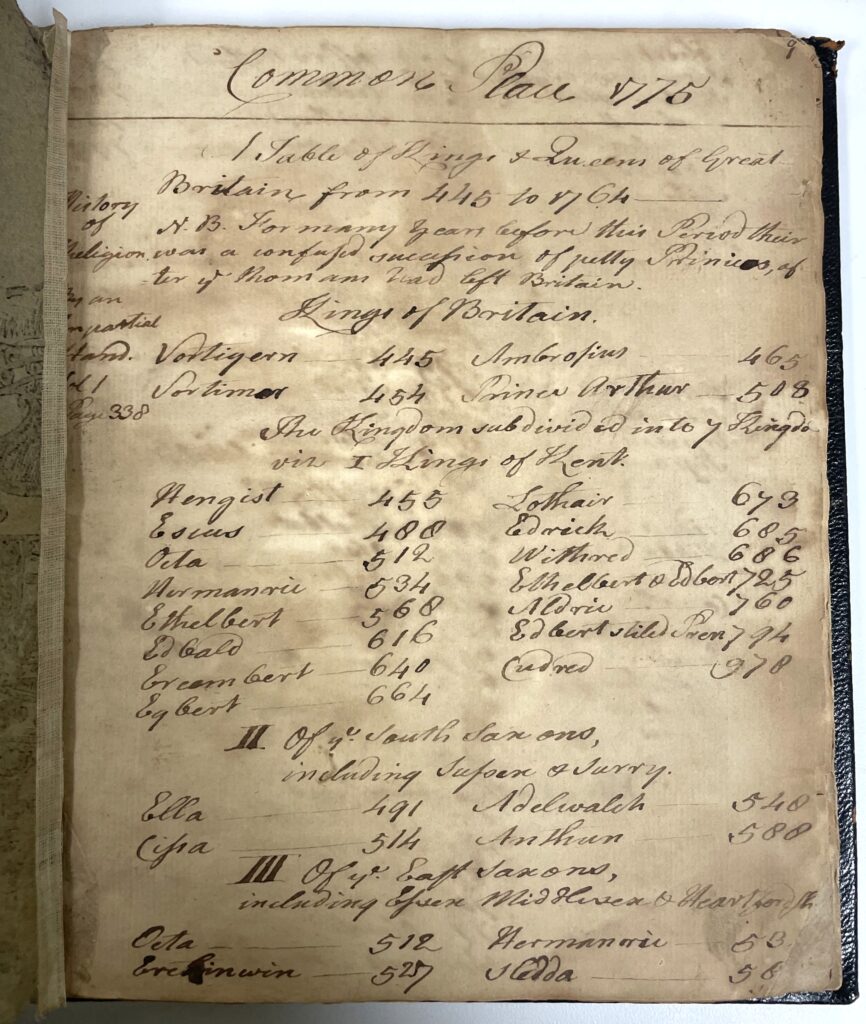 9
Common Place 1775
A Table of Kings & Queens of Great
Britain from 445 to 1764
N. B. For many Years before this Period their
was a confused succession of petty Princes, af
ter ye Romans had left Britain.
History
of
Religion
by an
Impartial
Hand.
Vol 1
Page 338
Kings of Britain.
Vortigern 445 Ambrosius 465
Vortimer 454 Prince Arthur 508
The Kingdom subdivided into 7 Kingdo
viz I Kings of Kent.
Hengist 455 Lothair 673
Escus 488 Edrick 685
Octa 512 Withred 686
Hermanric 534 Ethelbert & Edbert 725
Ethelbert 568 Aldric 760
Edbald 616 Edbert stiled Pren 794
Ercembert 640 Cudred 978
Egbert 664
II Of ye South Saxons,
including Sussex & Surry.
Ella 491 Adelwalch 548
Cissa 514 Anthun 588
III Of ye East Saxons,
including Essex Middlesex &
Octa 512 Hermanric 53
Erchinwin 527 Sledda 58